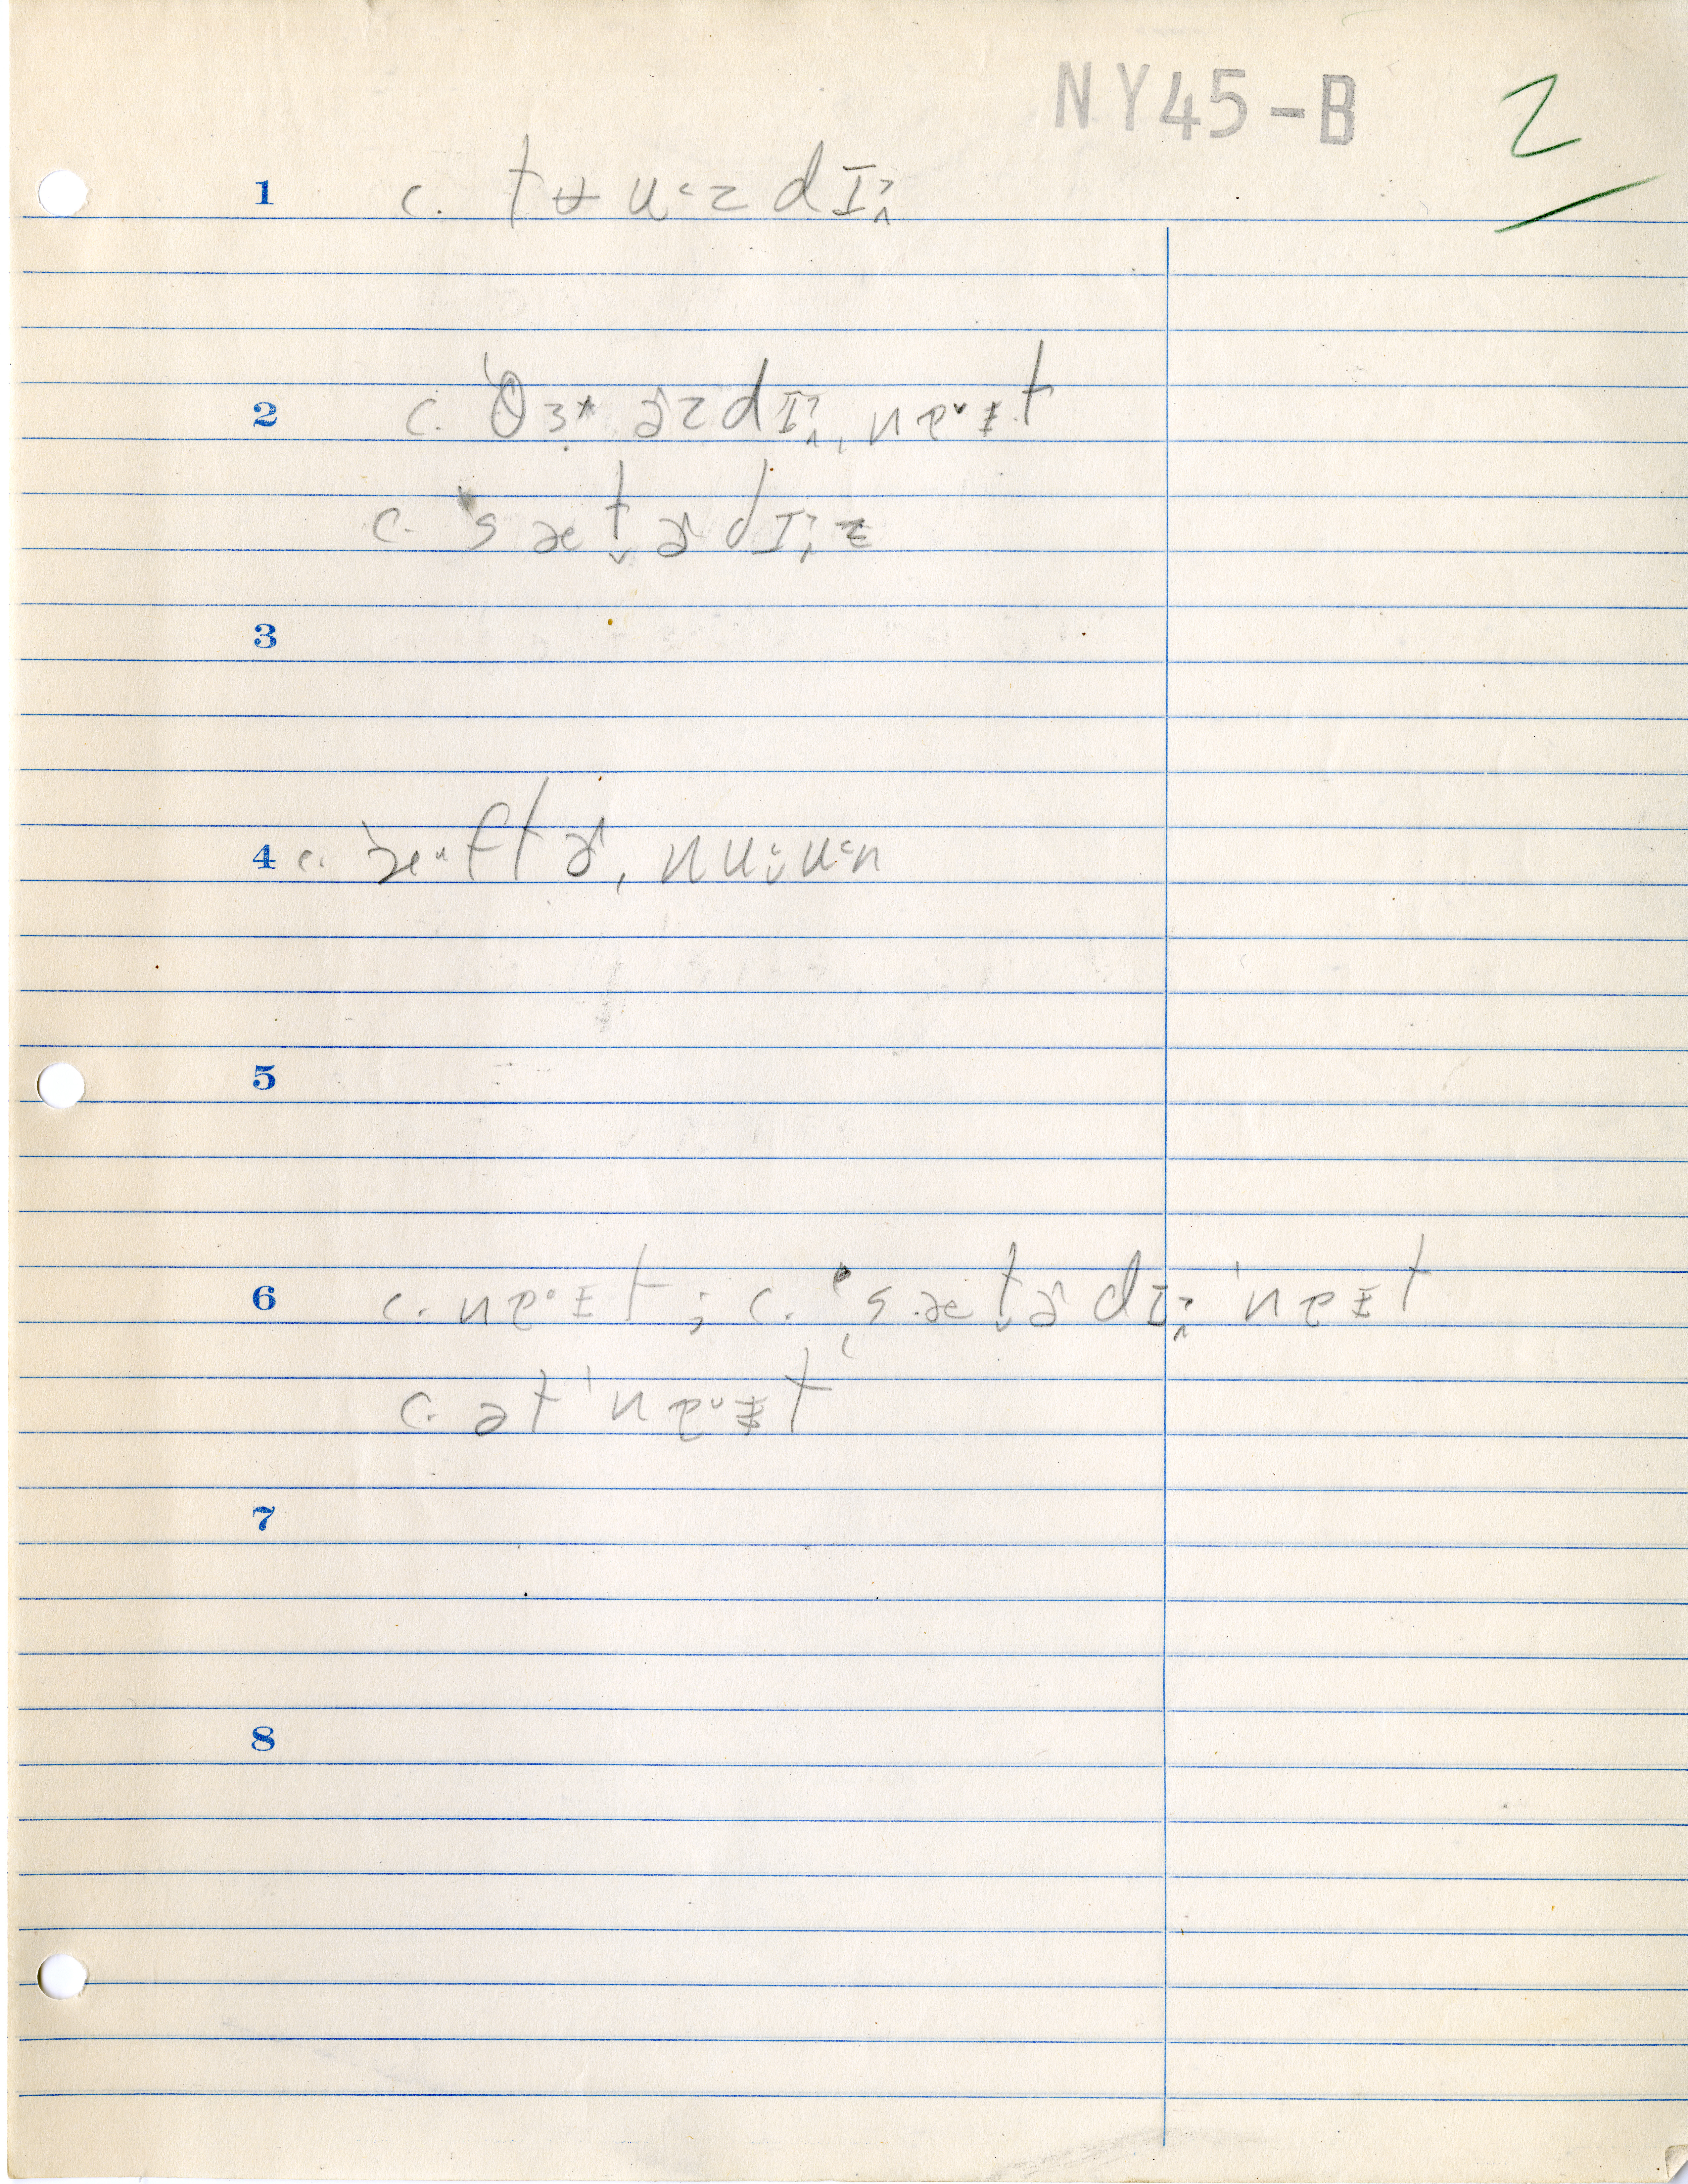 NY45-B 2
1 c. tʉuˑzdɪ˄
2 c. ˈθɜ˞ˑɚzdɪ˄, nɐˑɪt
c. ˈsæt̬ɚdɪ˄z
3
4 c. ˈæˑftɚ, nuˑuˑn
5
6 c. nɐˑɪt; c. ˈsæt̬ɚdɪ˄ ˈnɐɪt
c. ət ˈnɐˑɪt
7
8